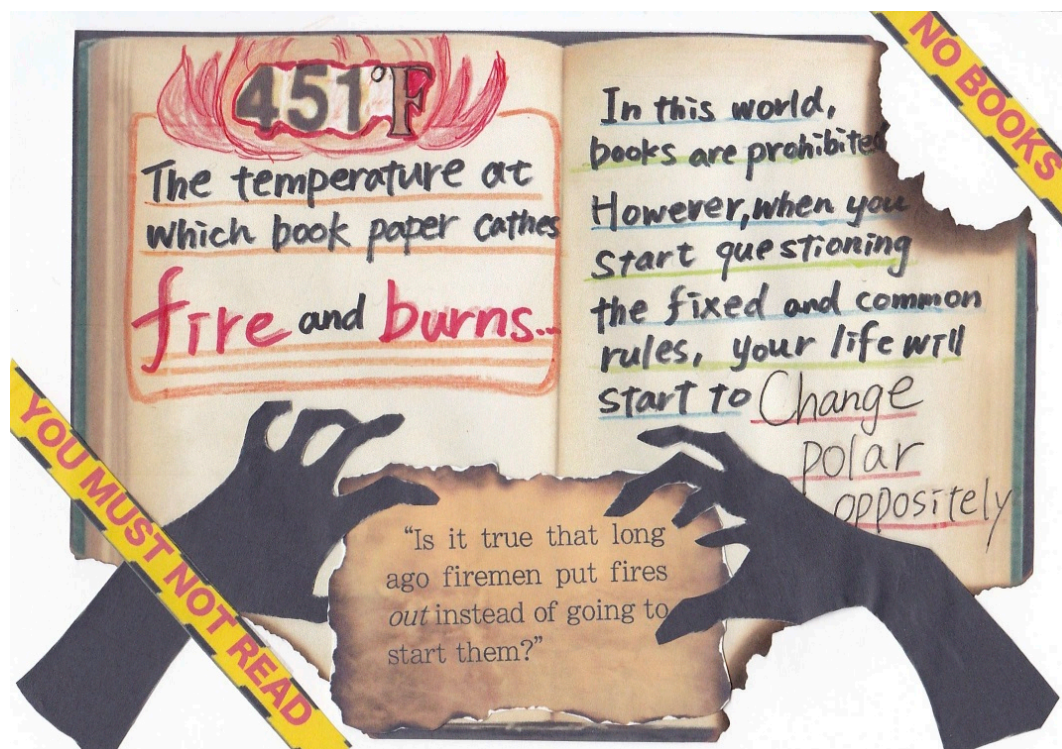 451°F
The temperature at
which book paper cathes
fire and burns...
In this world,
books are prohibited
However, when you
start questioning
the fixed and common
rules, your life will
start to Change
polar
oppositely
NO BOOKS
YOU MUST NOT READ
“Is it true that long
ago firemen put fires
out instead of going to
start them?”